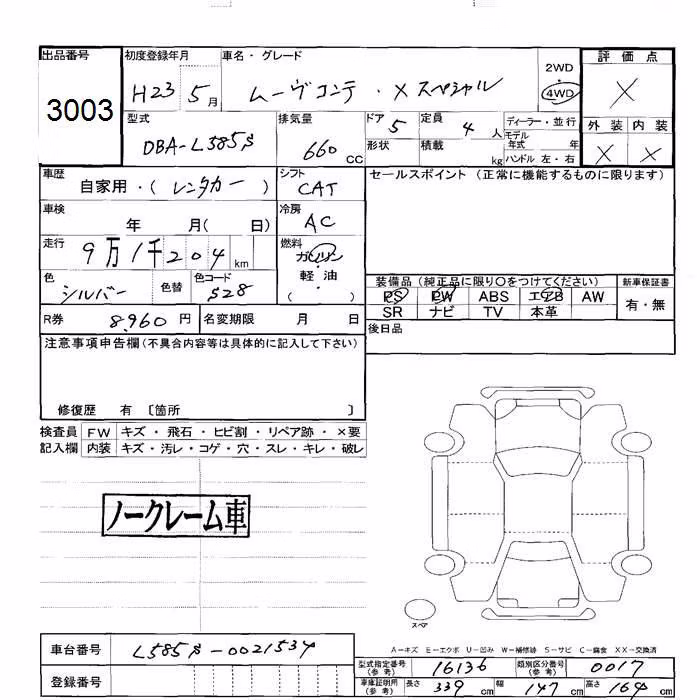 出品番号 初度登録年月 車名・グレード 2WD 評価点
3003 H23 5月 ムーヴコンテ・Xスペシャル 4WD X
型式 排気量 ドア 定員 ディーラー・並行 外装 内装
DBA-L585S 660 CC 5 4人 モデル年式 年 X X
形状 積載 kg ハンドル 左・右
車歴 シフト セールスポイント (正常に機能するものに限ります)
自家用・(レンタカー) CAT
車検 冷房
年 月( 日) AC
走行 燃料
9万1千204km ガソリン
色 色替 色コード 軽・油
シルバー 528 ( )
装備品 (純正品に限り〇をつけてください) 新車保証書
PS PW ABS エアB AW 有・無
SR ナビ TV 本革
R券 8,960円 名変期限 月 日
後日品
注意事項申告欄(不具合内容等は具体的に記入して下さい)
修復歴 有 〔箇所 〕
検査員 FW キズ・飛石・ヒビ割・リペア跡・×要
記入欄 内装 キズ・汚レ・コゲ・穴・スレ・キレ・破レ
ノークレーム車
スペア
A-キズ E-エクボ U-凹み W-補修跡 S-サビ C-腐食 XX-交換済
車台番号 L585S-0021534
登録番号
型式指定番号(参考) 16136 類別区分番号(参考) 0017
車庫証明用(参考) 長さ 339cm 幅 147cm 高さ 164cm